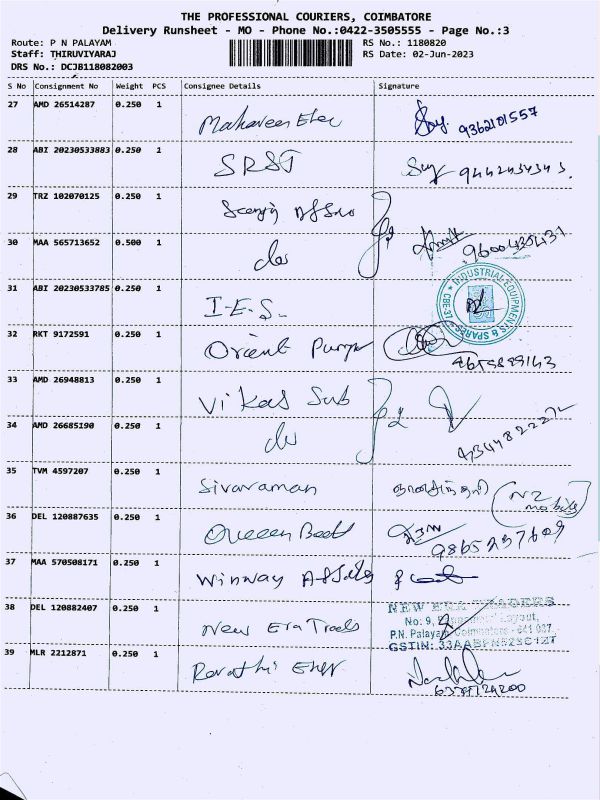 THE PROFESSIONAL COURIERS, COIMBATORE
Delivery Runsheet - MO - Phone No.:0422-3505555 - Page No.:3
Route: P N PALAYAM RS No.: 1180820
Staff: THIRUVIYARAJ RS Date: 02-Jun-2023
DRS No.: DCJB118082003
S No Consignment No Weight PCS Consignee Details Signature
27 AMD 26514287 0.250 1 Mahaveer Elec 9362101557
28 ABI 20230533883 0.250 1 SRST 9442434343.
29 TRZ 102070125 0.250 1
30 MAA 565713652 0.500 1 do 9600435431
31 ABI 20230533785 0.250 1 I-E-S. INDUSTRIAL EQUIPMENTS & SPARES
32 RKT 9172591 0.250 1 Orient Pump
33 AMD 26948813 0.250 1 Vikas Sub
34 AMD 26685190 0.250 1 do
35 TVM 4597207 0.250 1 Sivaraman NZ mobile
36 DEL 120887635 0.250 1 Queeen Beat 9865257609
37 MAA 570508171 0.250 1 Winway
38 DEL 120882407 0.250 1 New Era Trads NEW ERA TRADERS
No: 9, Layout,
P.N. Palayam Coimbatore - 641 037
GSTIN:
39 MLR 2212871 0.250 1